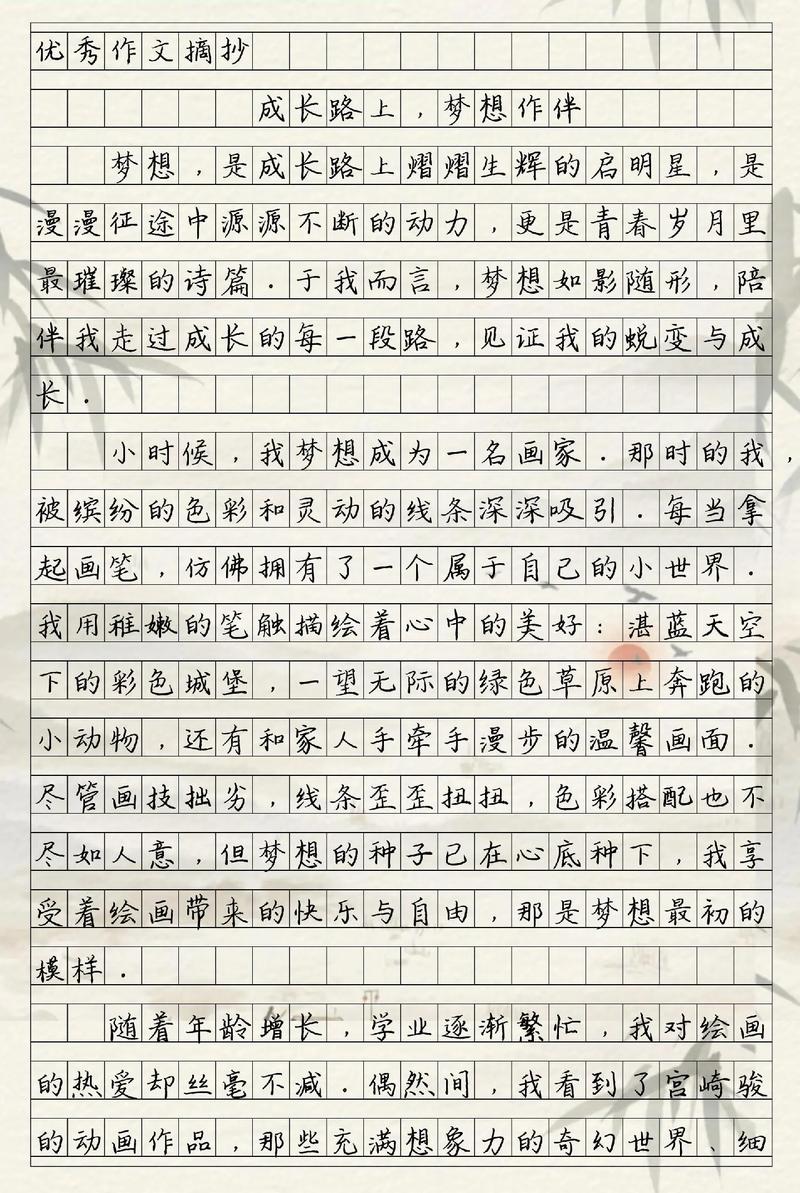 优秀作文摘抄
成长路上，梦想作伴
梦想，是成长路上熠熠生辉的启明星，是
漫漫征途中源源不断的动力，更是青春岁月里
最璀璨的诗篇．于我而言，梦想如影随形，陪
伴我走过成长的每一段路，见证我的蜕变与成
长．
小时候，我梦想成为一名画家．那时的我，
被缤纷的色彩和灵动的线条深深吸引．每当拿
起画笔，仿佛拥有了一个属于自己的小世界．
我用稚嫩的笔触描绘着心中的美好：湛蓝天空
下的彩色城堡，一望无际的绿色草原上奔跑的
小动物，还有和家人手牵手漫步的温馨画面．
尽管画技拙劣，线条歪歪扭扭，色彩搭配也不
尽如人意，但梦想的种子已在心底种下，我享
受着绘画带来的快乐与自由，那是梦想最初的
模样．
随着年龄增长，学业逐渐繁忙，我对绘画
的热爱却丝毫不减．偶然间，我看到了宫崎骏
的动画作品，那些充满想象力的奇幻世界、细